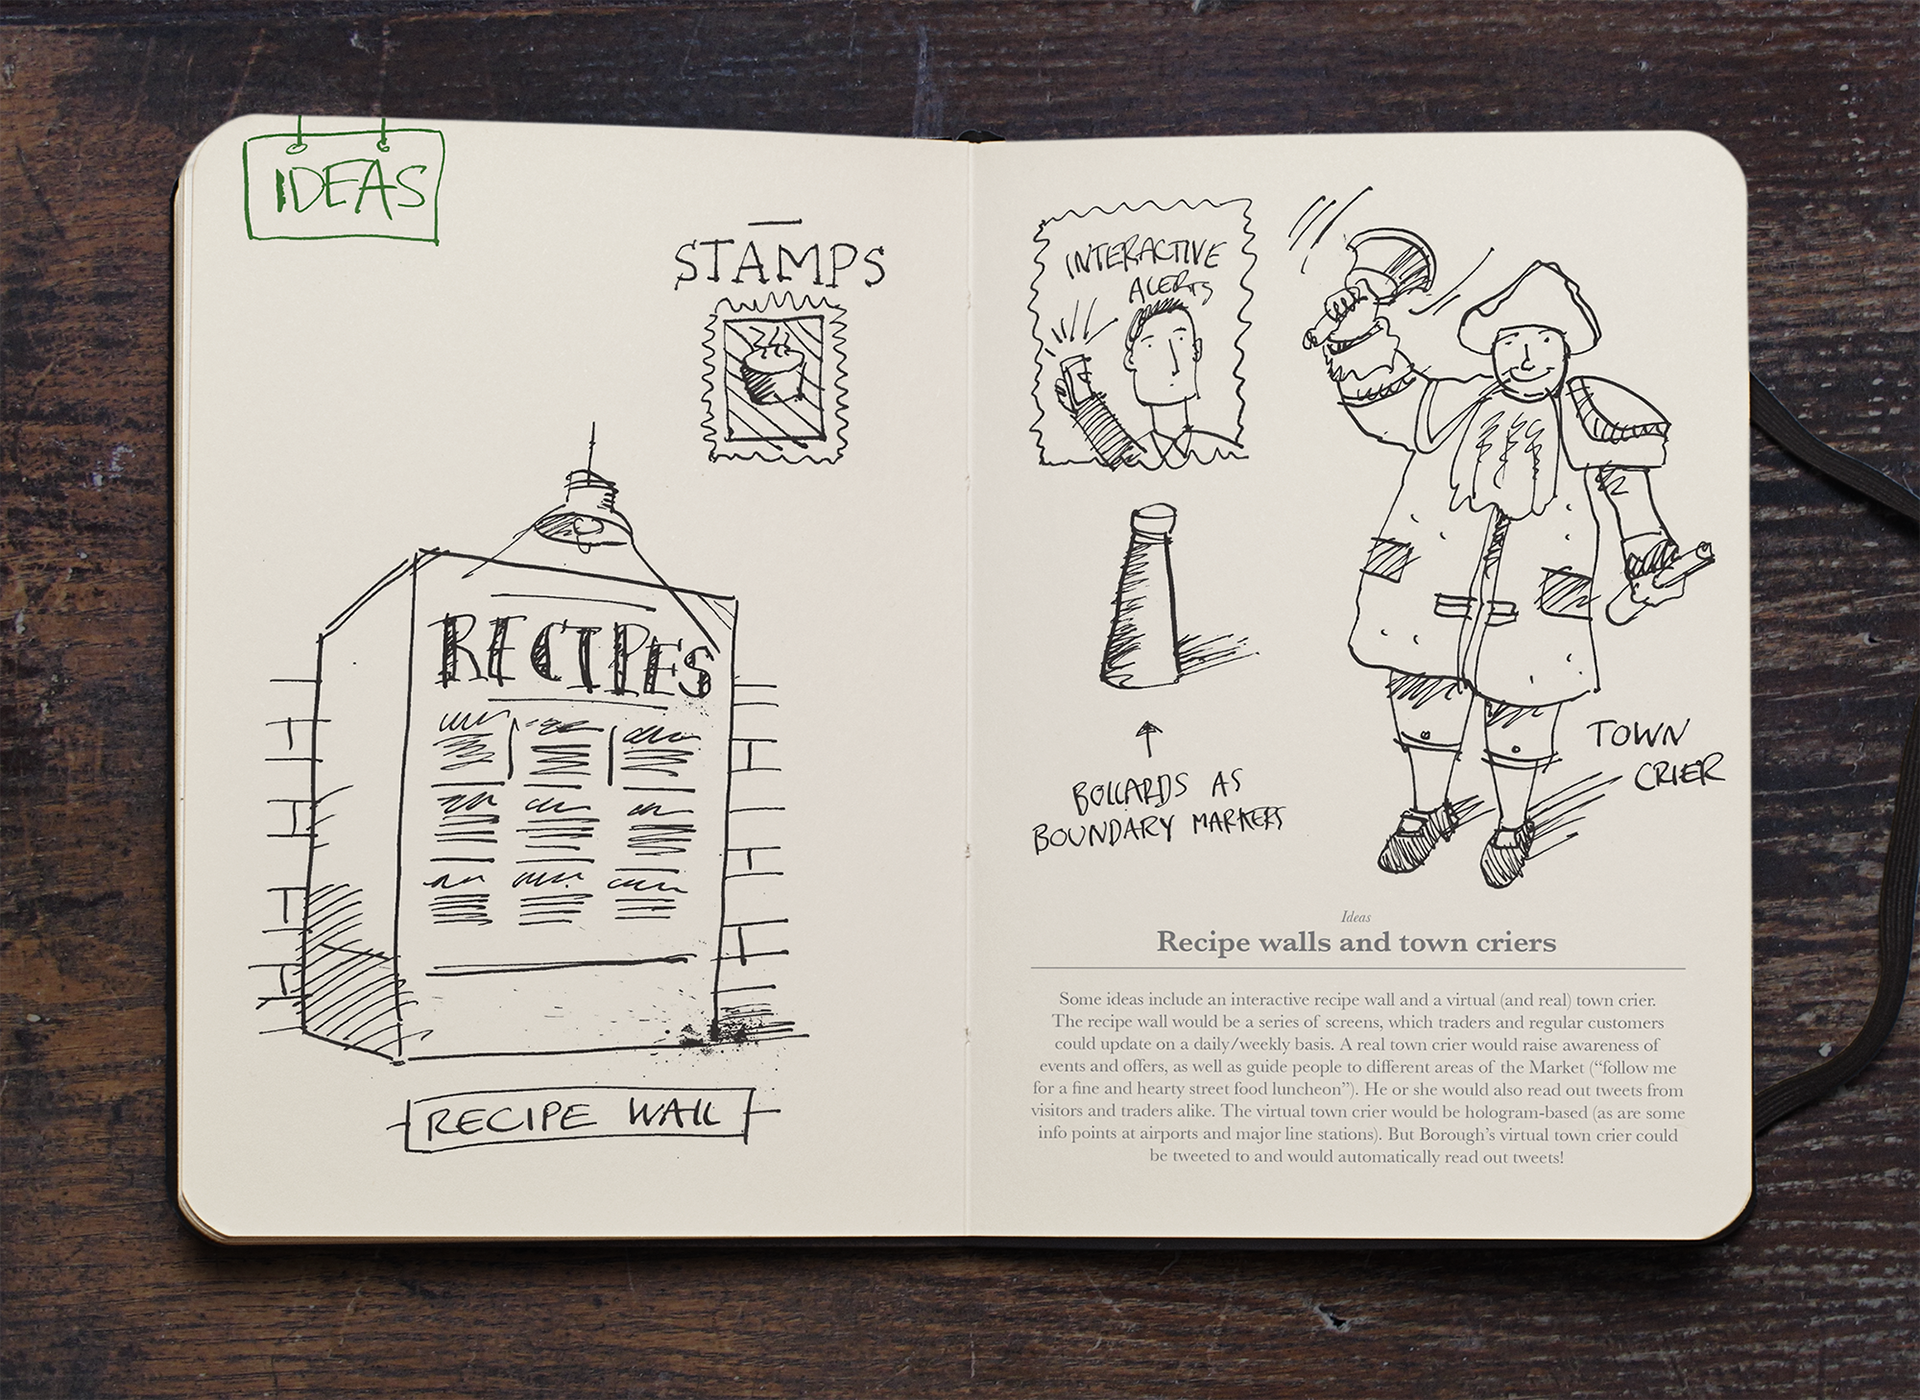 IDEAS
STAMPS
RECIPES
RECIPE WALL
INTERACTIVE
ALERTS
BOLLARDS AS
BOUNDARY MARKERS
TOWN
CRIER
Ideas
Recipe walls and town criers
Some ideas include an interactive recipe wall and a virtual (and real) town crier.
The recipe wall would be a series of screens, which traders and regular customers
could update on a daily/weekly basis. A real town crier would raise awareness of
events and offers, as well as guide people to different areas of the Market (“follow me
for a fine and hearty street food luncheon”). He or she would also read out tweets from
visitors and traders alike. The virtual town crier would be hologram-based (as are some
info points at airports and major line stations). But Borough’s virtual town crier could
be tweeted to and would automatically read out tweets!